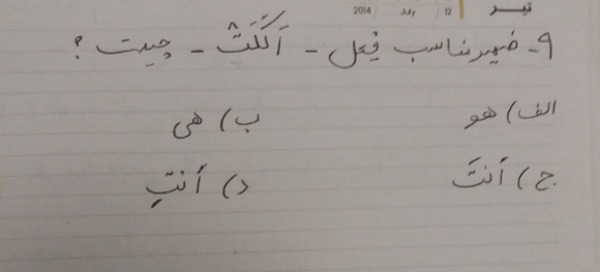 تیر 12 July 2014
۹- ضمیر مناسب فعل - اَکَلَتْ - چیست ؟
الف) هو ب) هی
ج) أنتَ د) أنتِ